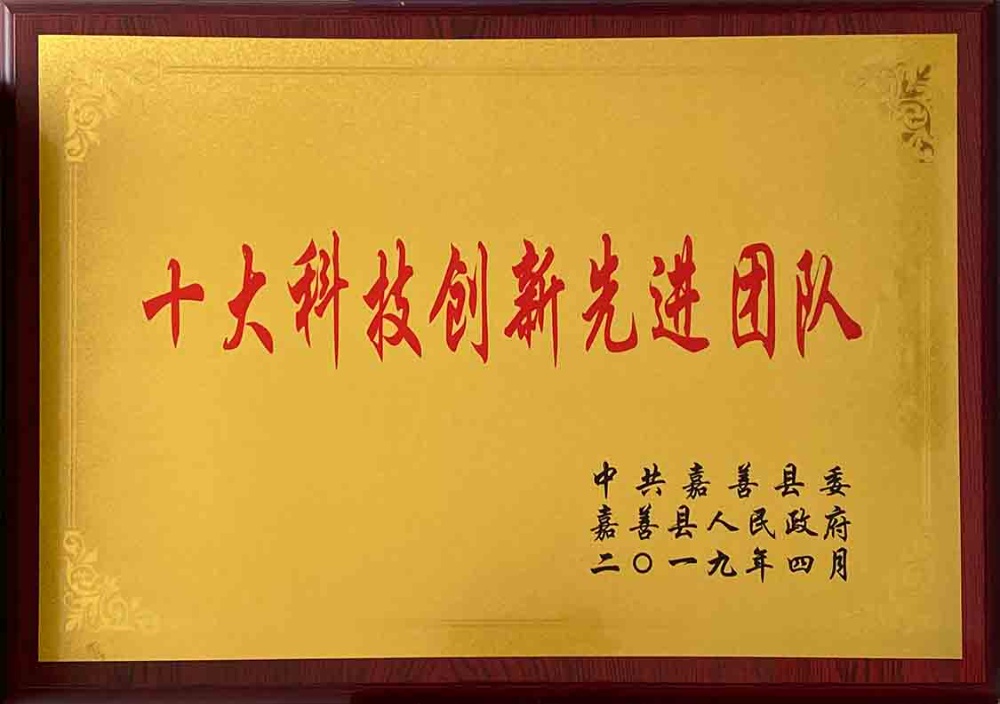 十大科技创新先进团队
中共嘉善县委
嘉善县人民政府
二〇一九年四月